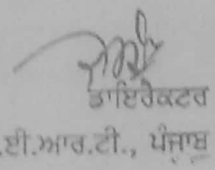 ਡਾਇਰੈਕਟਰ
ਈ.ਆਰ.ਟੀ., ਪੰਜਾਬ